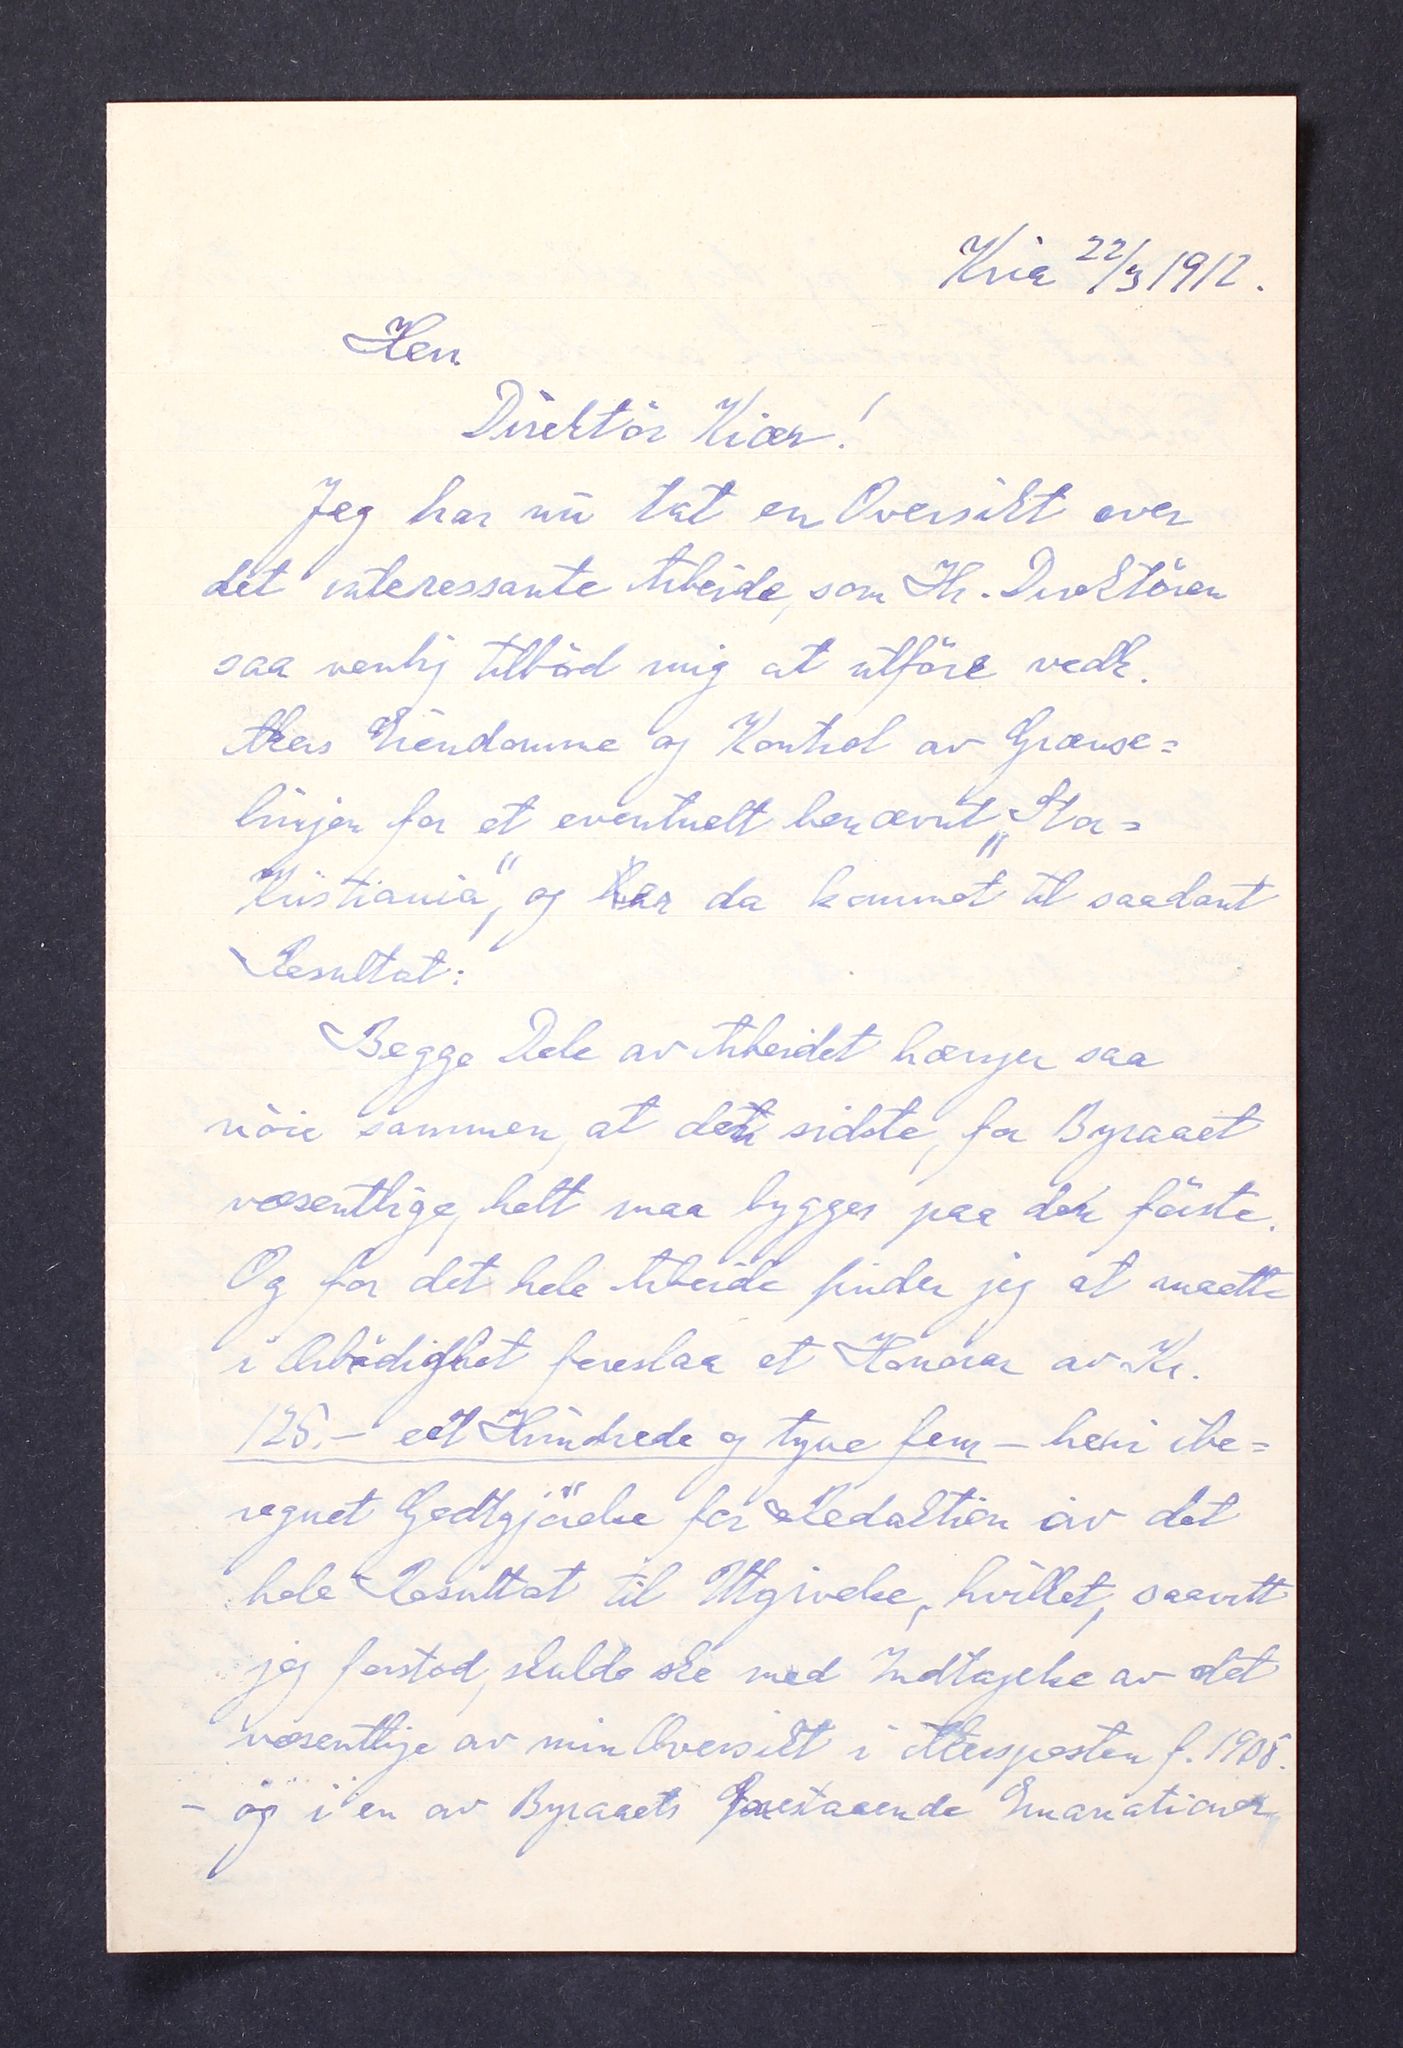 Kria 22/3 1912.
Herr
Direktör Kiær!
Jeg har nu tat en Oversikt over
det interessante Arbeide, som Hr. Direktören
saa venlig tilböd mig at utföre vedk.
Akers Eiendomme og Kontrol av Grænse=
linjen for et eventuelt benævnt „Stor=
Kristiania", og har da kommet til saadant
Resultat:
Begge Dele av Arbeidet hænger saa
nöie sammen, at den sidste, for Byraaet
væsentlige, helt maa bygges paa den förste.
Og for det hele Arbeide finder jeg at maatte
i Ærbödighet foreslaa et Honorar av Kr.
125.- et Hundrede og tyve fem - heri ibe=
regnet Godtgjörelse for Redaktion av det
hele Resultat til Utgivelse, hvilket, saavitt
jeg forstod, skulde ske med Indtagelse av det
væsentlige av min Oversikt i Akersposten f. 1905.
- og i en av Byraaets forestaaende Emanationer,